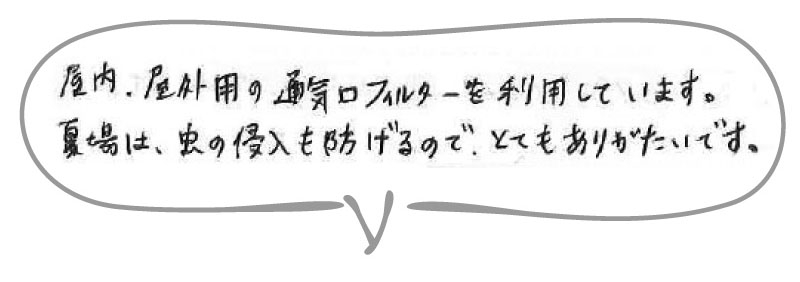 屋内、屋外用の通気口フィルターを利用しています。
夏場は、虫の侵入も防げるので、とてもありがたいです。